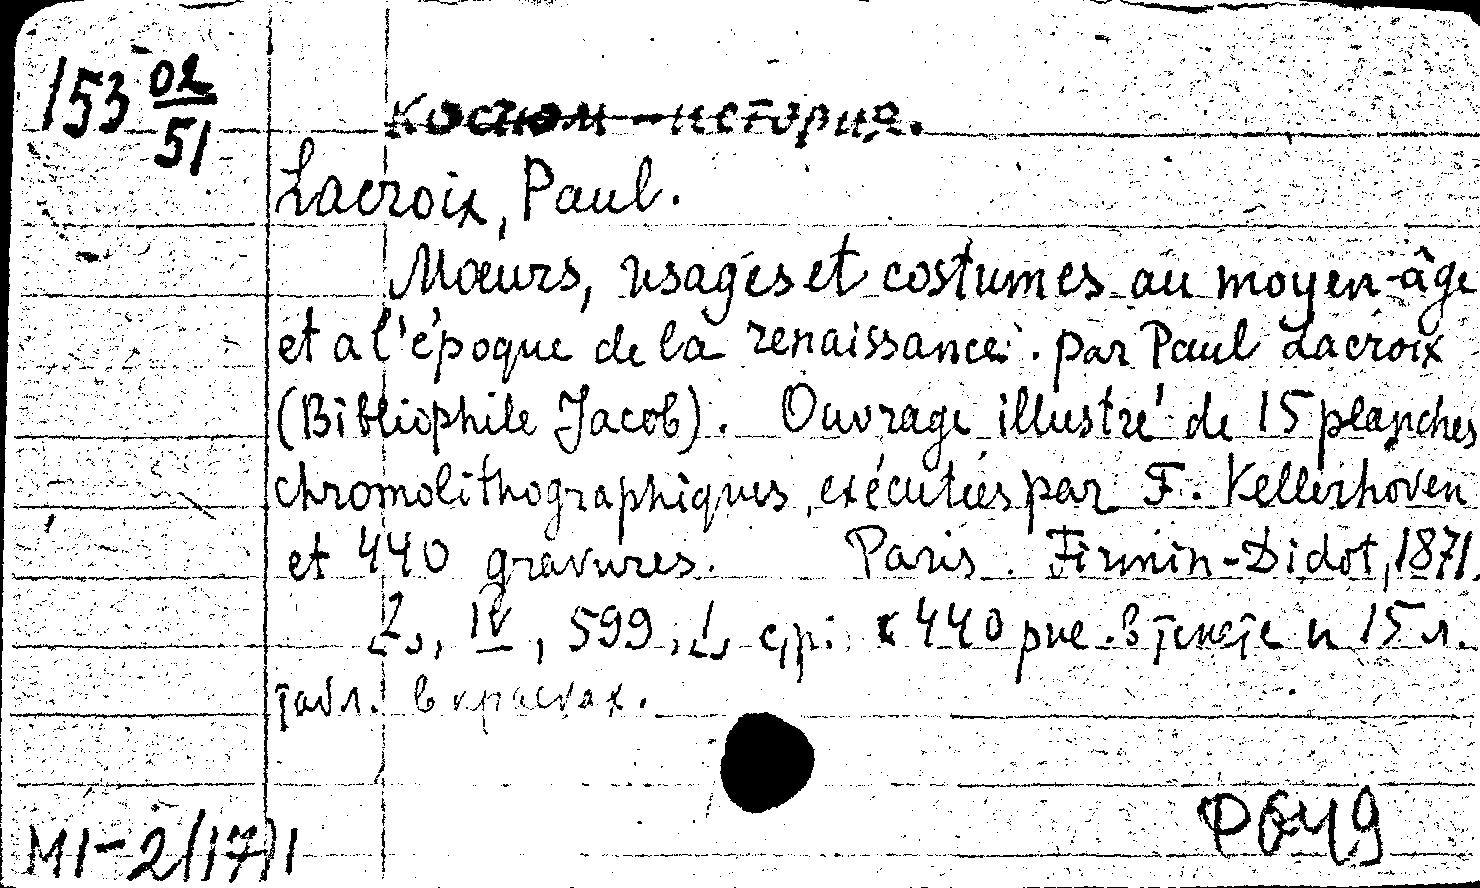 153 02/51
Костюм - история.
Lacroix, Paul.
Mœurs, usages et costumes au moyen-âge
et a l'époque de la renaissance. par Paul Lacroix
(Bibliophile Jacob). Ouvrage illustré de 15 planches
chromolithographiques, exécutées par F. Kellerhoven
et 440 gravures. Paris. Firmin-Didot, 1871.
IV, 599, стр. 440 рис. в тексте и 15 л.
табл. в красках.
М1-2/17/1